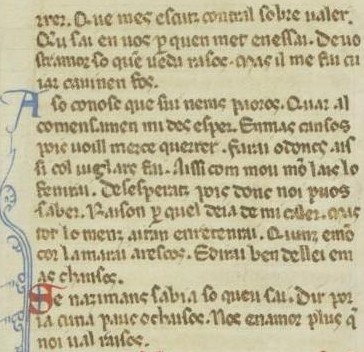 rrer. Que mes escur contral sobre ualer.
Qu sai en uos p quen met enessai. De uo
stramor so que uedu rasos. Mas il me fai cu
iar cauinen fos.
A so conosc que sui nems paoros. Quar al
comensamen mi doc esper. En mas cansos
pois uoill merce querrer. Farai o doncs. ais
si col iuglars fai. Aissi com mou mo lais lo
fenirai. Desesperatz pois donc noi puos
saber. Raison p quel deia de mi caler. Mas
tot lo menz aitan en retenrai. Quinz emo
cor lamarai arescos. E dirai ben de llei em
as chansos.
Se nazimans sabia so queu sai. Dir por
ia cuna pauc ochaisos. Nos enamor plus q
noi ual raisos.